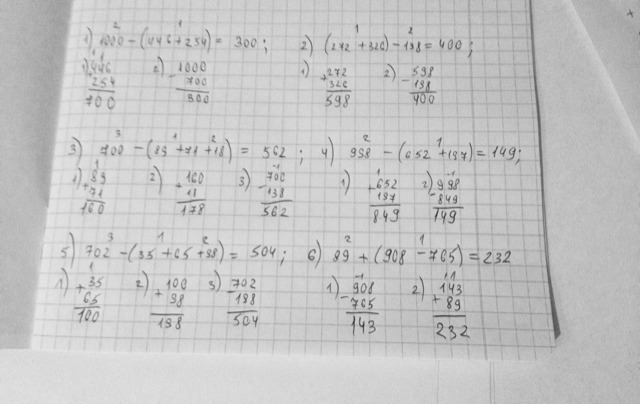 1) 1000 - (446 + 254) = 300; 2) (272 + 326) - 198 = 400;
1) 446 + 254 = 700 2) 1000 - 700 = 300 1) 272 + 326 = 598 2) 598 - 198 = 400
3) 700 - (89 + 71 + 18) = 562; 4) 998 - (652 + 197) = 149;
1) 89 + 71 = 160 2) 160 + 18 = 178 3) 700 - 138 = 562 1) 652 + 197 = 849 2) 998 - 849 = 149
5) 702 - (35 + 65 + 98) = 504; 6) 89 + (908 - 765) = 232
1) 35 + 65 = 100 2) 100 + 98 = 198 3) 702 - 198 = 504 1) 908 - 765 = 143 2) 143 + 89 = 232